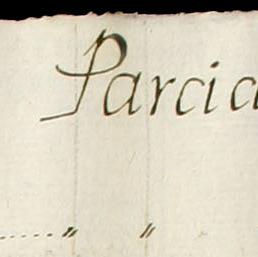 Parcia
..... " "